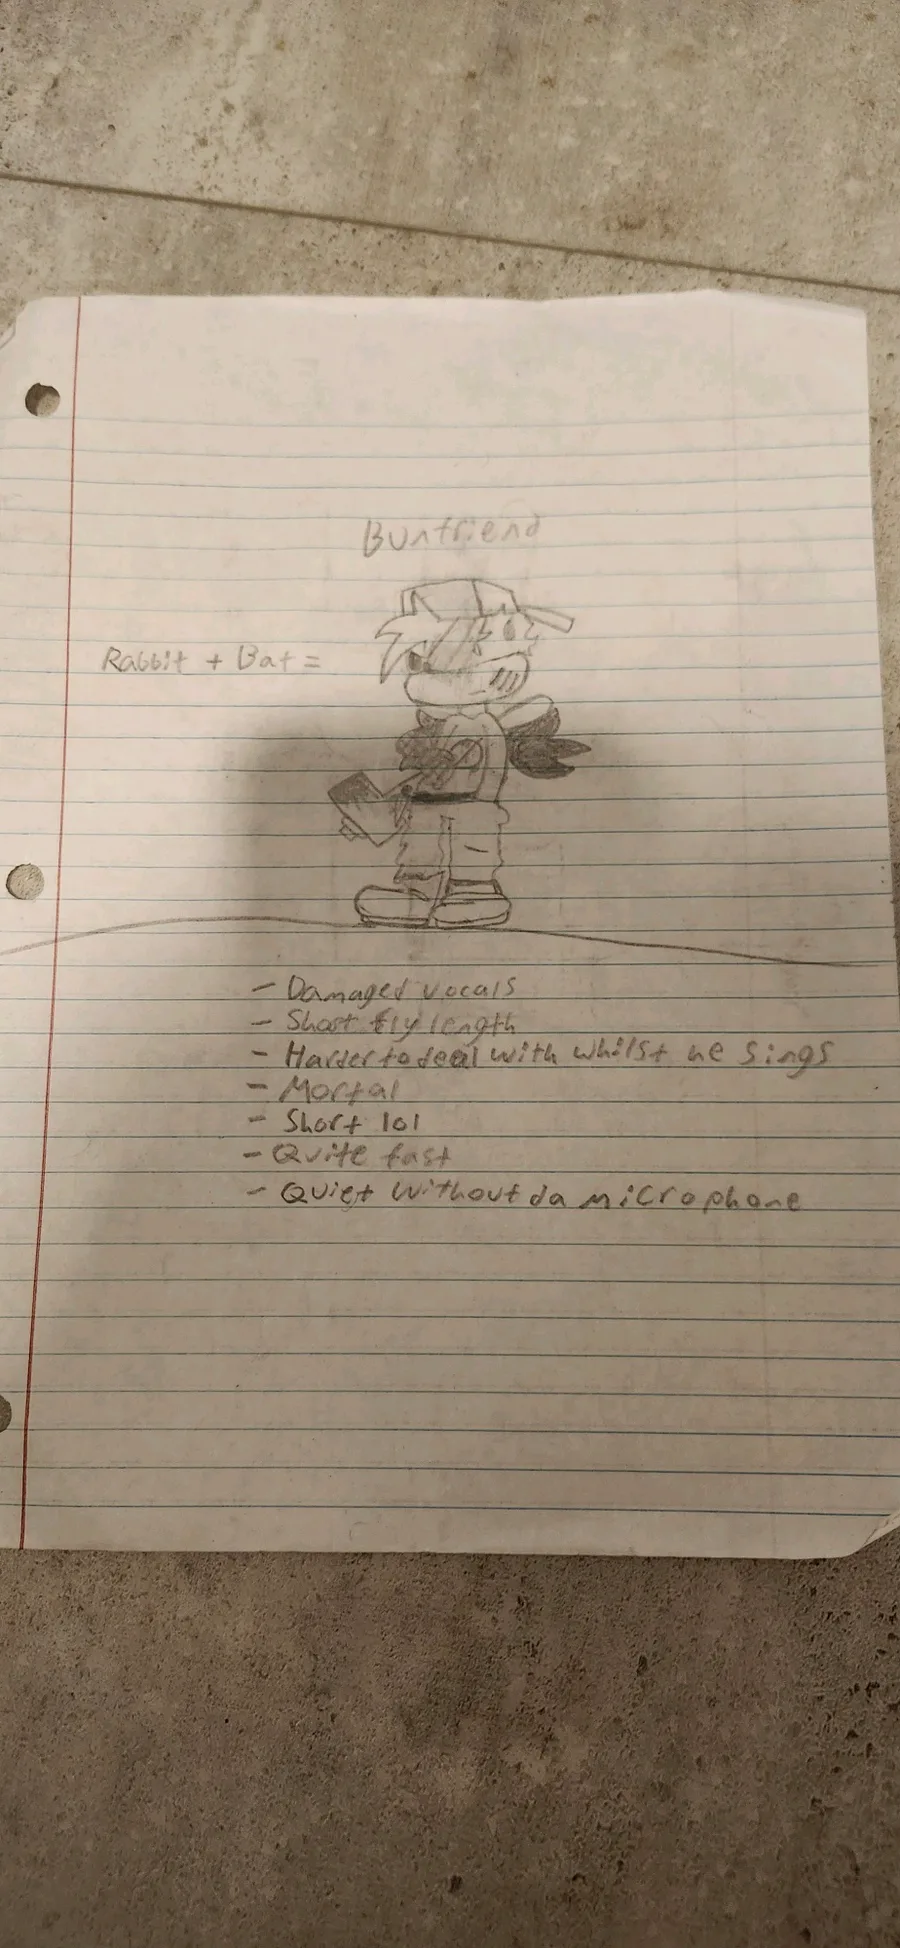 Bunfriend
Rabbit + Bat =
- Damaged vocals
- Short fly length
- Harder to deal with whilst he sings
- Mortal
- Short lol
- Quite fast
- Quiet without da microphone